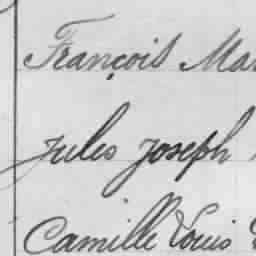 François Mar
Jules Joseph
Camille Louis